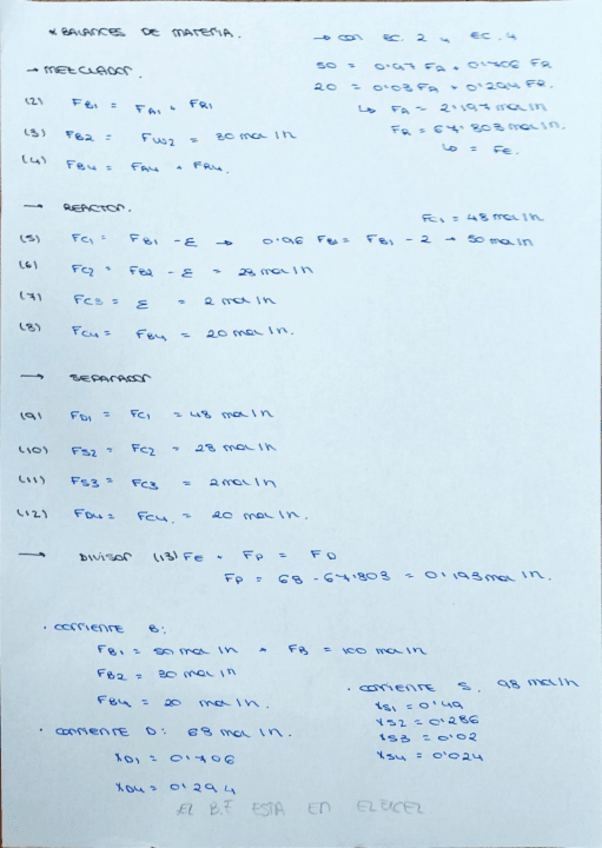 * BALANCES DE MATERIA.
→ MEZCLADOR.
(2) FB1 = FA1 + FR1
(3) FB2 = FW2 = 30 mol/h
(4) FB4 = FA4 + FR4.
→ con EC. 2 y EC. 4
50 = 0'97 FA + 0'706 FR
20 = 0'03 FA + 0'294 FR.
↳ FA = 2'197 mol/h
FR = 67'803 mol/h.
↳ = FE.
→ REACTOR.
FC1 = 48 mol/h
(5) FC1 = FB1 - ε → 0'96 FB1 = FB1 - 2 → 50 mol/h
(6) FC2 = FB2 - ε = 28 mol/h
(7) FC3 = ε = 2 mol/h
(8) FC4 = FB4 = 20 mol/h.
→ SEPARADOR
(9) FD1 = FC1 = 48 mol/h
(10) FS2 = FC2 = 28 mol/h
(11) FS3 = FC3 = 2 mol/h
(12) FD4 = FC4. = 20 mol/h.
→ DIVISOR (13) FE + FP = FD
FP = 68 - 67'803 = 0'193 mol/h.
· CORRIENTE B:
FB1 = 50 mol/h → FB = 100 mol/h
FB2 = 30 mol/h
FB4 = 20 mol/h.
· CORRIENTE D: 68 mol/h.
XD1 = 0'706
XD4 = 0'294
· CORRIENTE S. 98 mol/h
XS1 = 0'49
XS2 = 0'286
XS3 = 0'02
XS4 = 0'024
EL B.E ESTA EN EL EXCEL